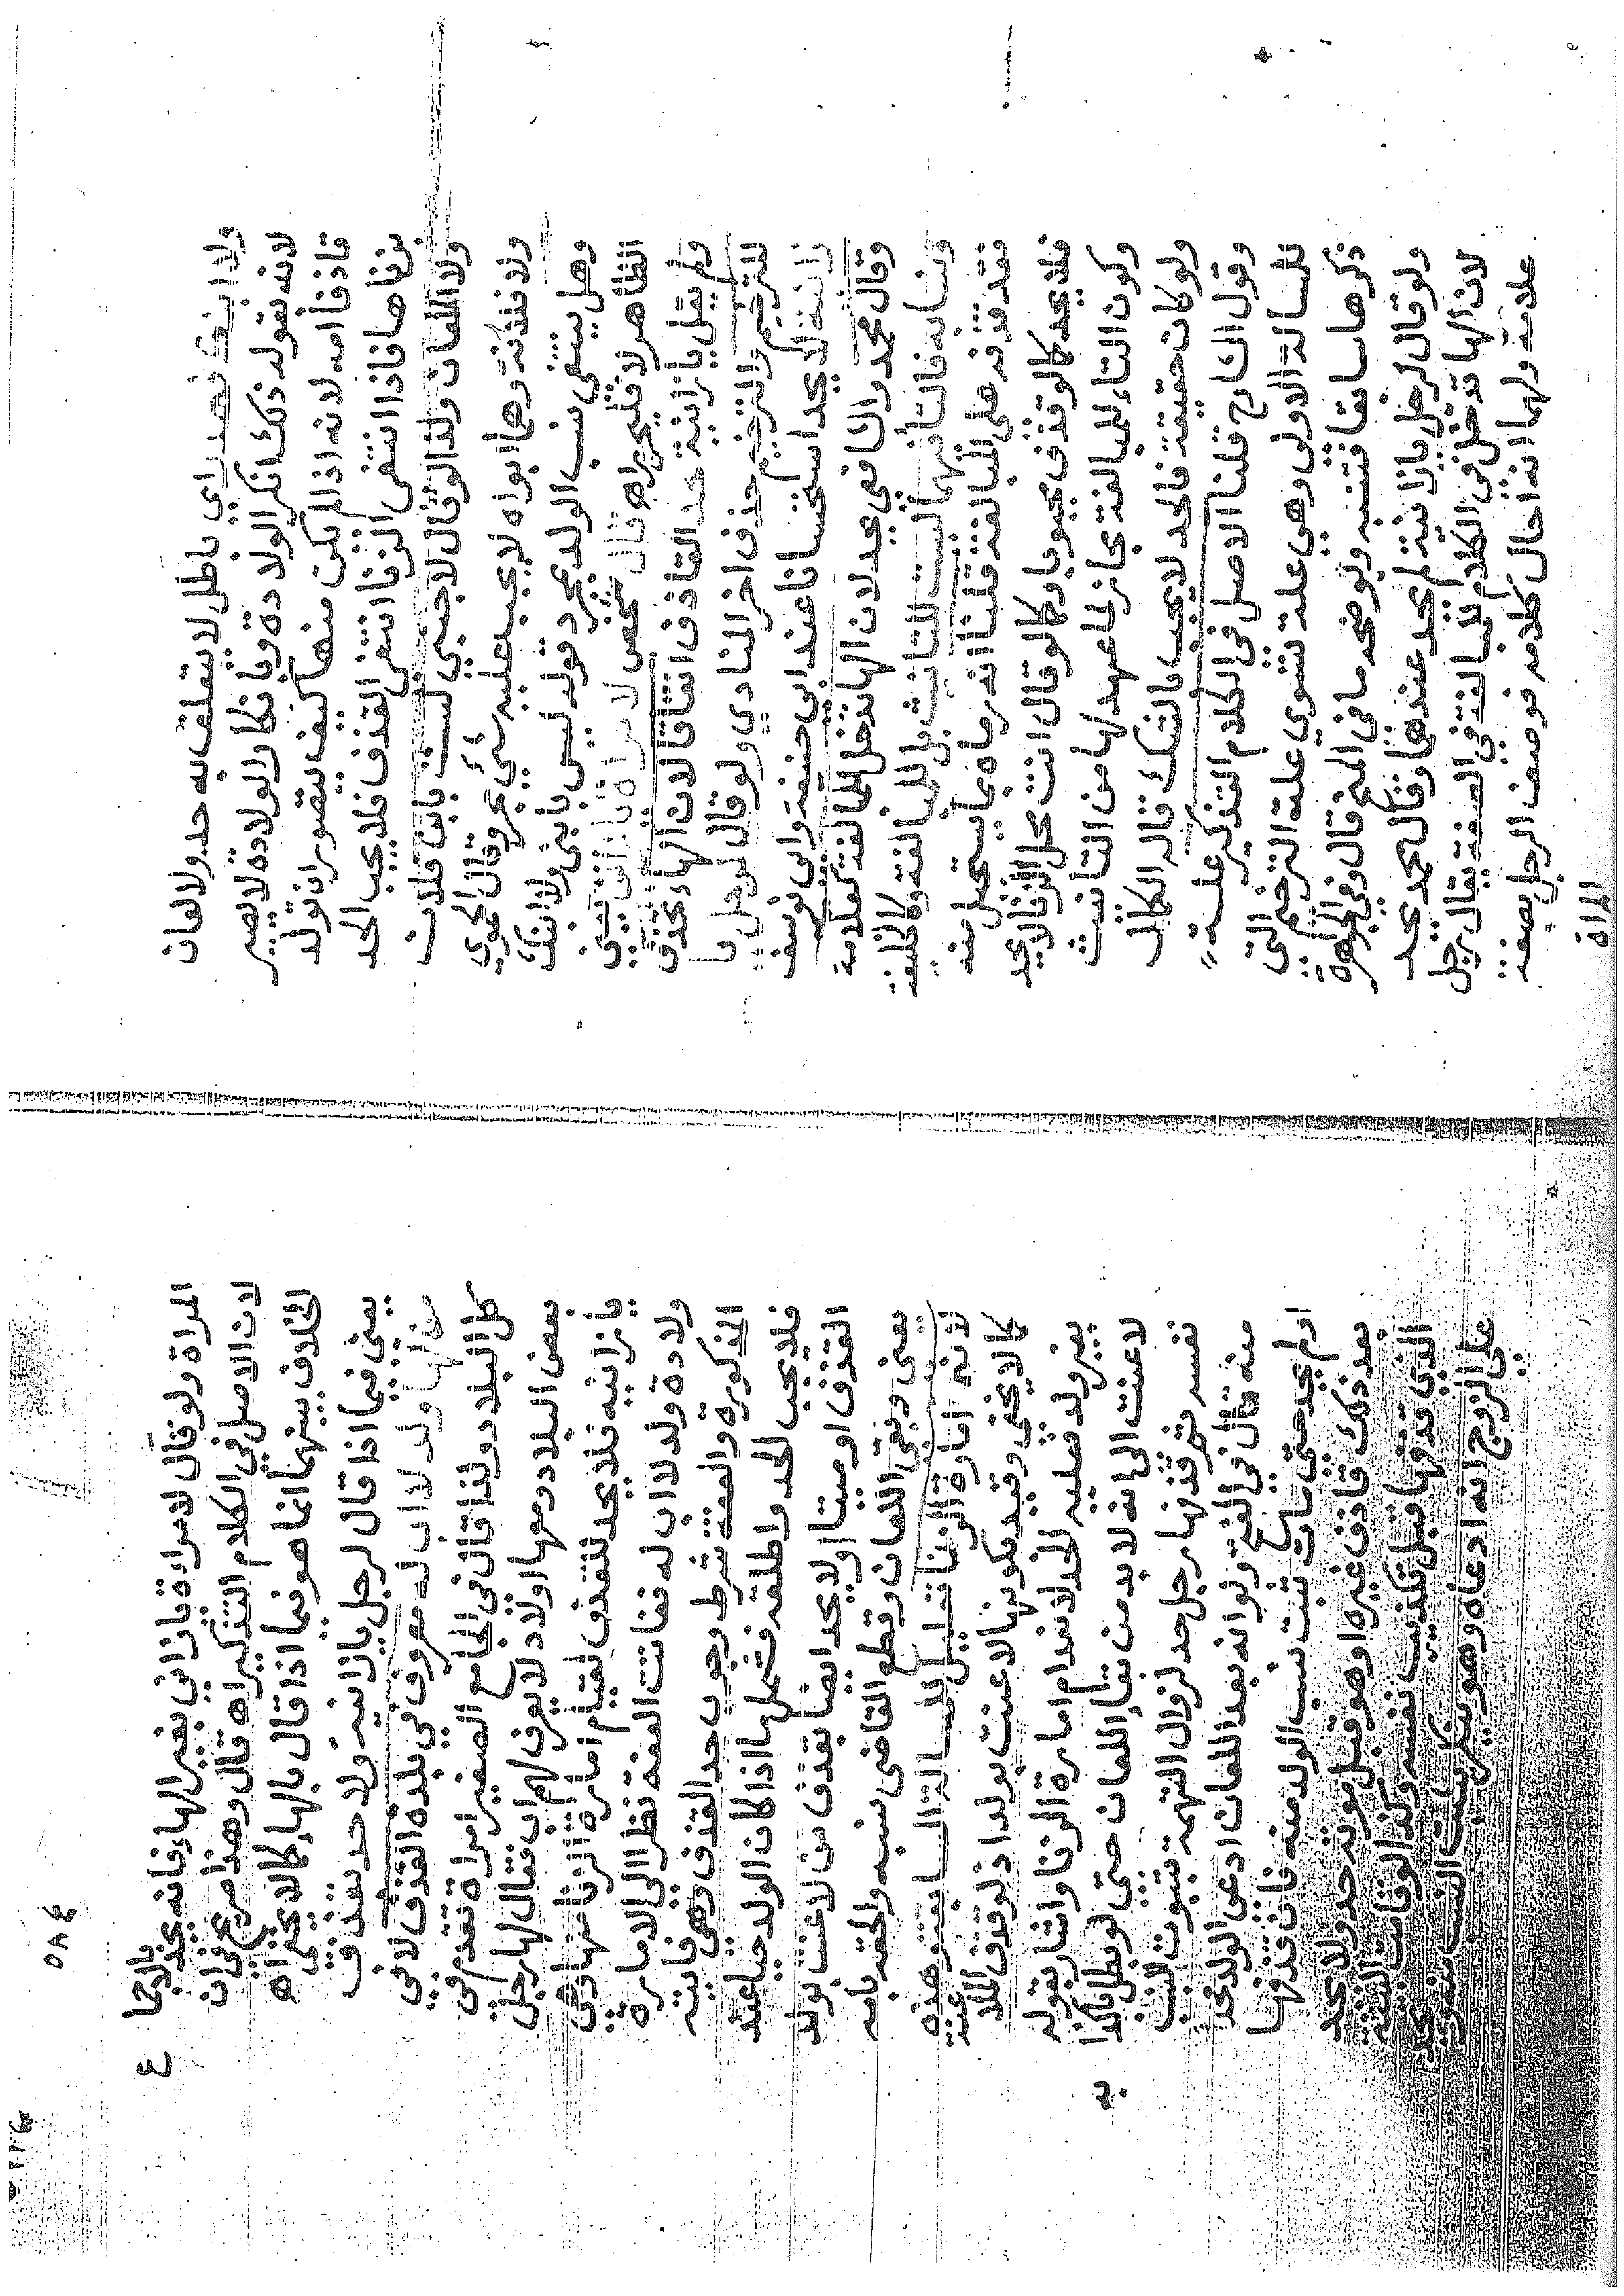 ولا ابنك فهدر اي باطل لا يتعلق به حد ولا لعان
لانه بقوله ذلك انكر الولادة وبانكار الولادة لا يصير
قاذفا امه لانه اذا لم يكن منها كيف يتصور ان تولد
بزناها فاذا انتفى الزنا انتفى القذف فلا يجب الحد
ولا اللعان ولذا لو قال لاجنبي لست بابن فلان
ولا فلانة وهما ابواه لا يجب عليه شيء بحر وقال الحموي
وهل ينتفي نسب الولد بمجرد قوله ليس بابني ولا ابنك
الظاهر لا فليحرر اه قال شخص لامراة يا زاني
ولم يقل يا زانية حد القاذف اتفاقا لان الهاء تحذف
للترخيم والترخيم حذف اخر المنادي ولو قال لرجل يا
زانية لا يحد استحسانا عند ابي حنيفة وابي يوسف
وقال محمد والشافعي يحد لان الها تدخل للمبالغة كعلامة
ونسابة فالتا فيهما ليست للتانيث بل للمبالغة وكالخليفة
فقد قذفه على المبالغة قلنا انه رماه بما يستحيل منه
فلا يحد كما لو قذف مجبوبا وكما لو قال انت محل الزنا لا يحد
وكون التاء للمبالغة مجاز لما عهد لها من التانيث
ولو كان حقيقة فالحد لا يجب بالشك قاله الكمال
وقول الشارح قلنا الاصل في الكلام التذكير علة
للمسالة الاولى وهي علة تسوي علة الترخيم التي
ذكرها سابقا فتنبه ويوضحه ما في المنح قال وفي الجوهرة
ولو قال لرجل يا زانية لم يحد عندهما وقال محمد يحد
لان الها تدخل في الكلام للمبالغة في الصفة يقال رجل
علامة ولهما انه احال كلامه فوصف الرجل بصفة
المراة
٥٨٤
المراة ولو قال لامراة يا زاني بغير الهاء فانه يحد بالاجماع
لان الاصل في الكلام التذكير اه قال وهذا صريح في ان
الخلاف بينهما انما هو فيما اذا قال بالهاء كما لا يخفى اه
يعني فيما اذا قال لرجل يا زانية ولا حد بقذف
من لها ولد لا اب له معروف في بلده القذف لا في
كل البلاد ولذا قال في الجامع الصغير امراة تقدم في
بعض البلاد ومعها اولاد لا يعرف لهم اب فقال لها رجل
يا زانية فلا يحد للقذف لقيام امارة الزنا منها وهي
ولادة ولد لا اب له ففاتت العفة نظرا الى الامارة
المذكورة والعفة شرط وجوب حد القذف وهي فايتة
فلا يجب الحد واطلقه فشمل ما اذا كان الولد حيا عند
القذف او ميتا ولا يحد ايضا بقذف من لاعنت بولد
يعني ونفى اللعان وقطع القاضي نسبه والحقه بامه
لانه امارة الزنا تعليل للمسالة السابقة وهذه
كما لا يخفى وقيد بكونها لاعنت بولد اذ لو قذف الملاعنة
بغير ولد فعليه الحد لانعدام امارة الزنا واشار بقوله
لاعنت الى انه لا بد من بقاء اللعان حتى لو بطل باكذابه
نفسه ثم قذفها رجل حد لزوال التهمة بثبوت النسب
منه قال في الفتح ولو انه بعد اللعان ادعى الولد فحد
او لم يحد حتى مات ثبت نسب الولد منه فان قذفها
بعد ذلك قاذف غيره او هو قبل موته حد ولا يحد
الذي قذفها قبل تكذيب نفسه وكذا لو قامت البينة
على الزوج انه ادعاه وهو ينكر يثبت النسب منه ويحد